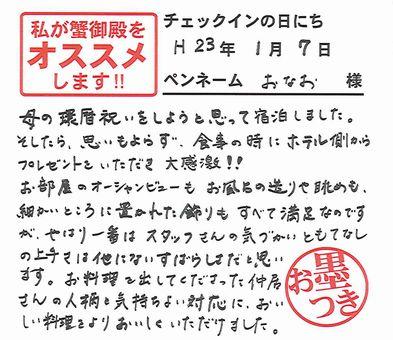 私が蟹御殿を
オススメ
します!!
チェックインの日にち
H 23年 1月 7日
ペンネーム おなお 様
母の環暦祝いをしようと思って宿泊しました。
そしたら、思いもよらず、食事の時にホテル側から
プレゼントをいただき 大感激!!
お部屋のオーシャンビューも お風呂の造りや眺めも、
細かいところに置かれた飾りも すべて満足なのです
が、やはり一番は スタッフさんの気づかいともてなし
の上手さは他にないすばらしさだと思い
ます。お料理を出してくださった仲居
さんの人柄と気持ちよい対応に、おい
しい料理をよりおいしくいただけました。
お墨つき